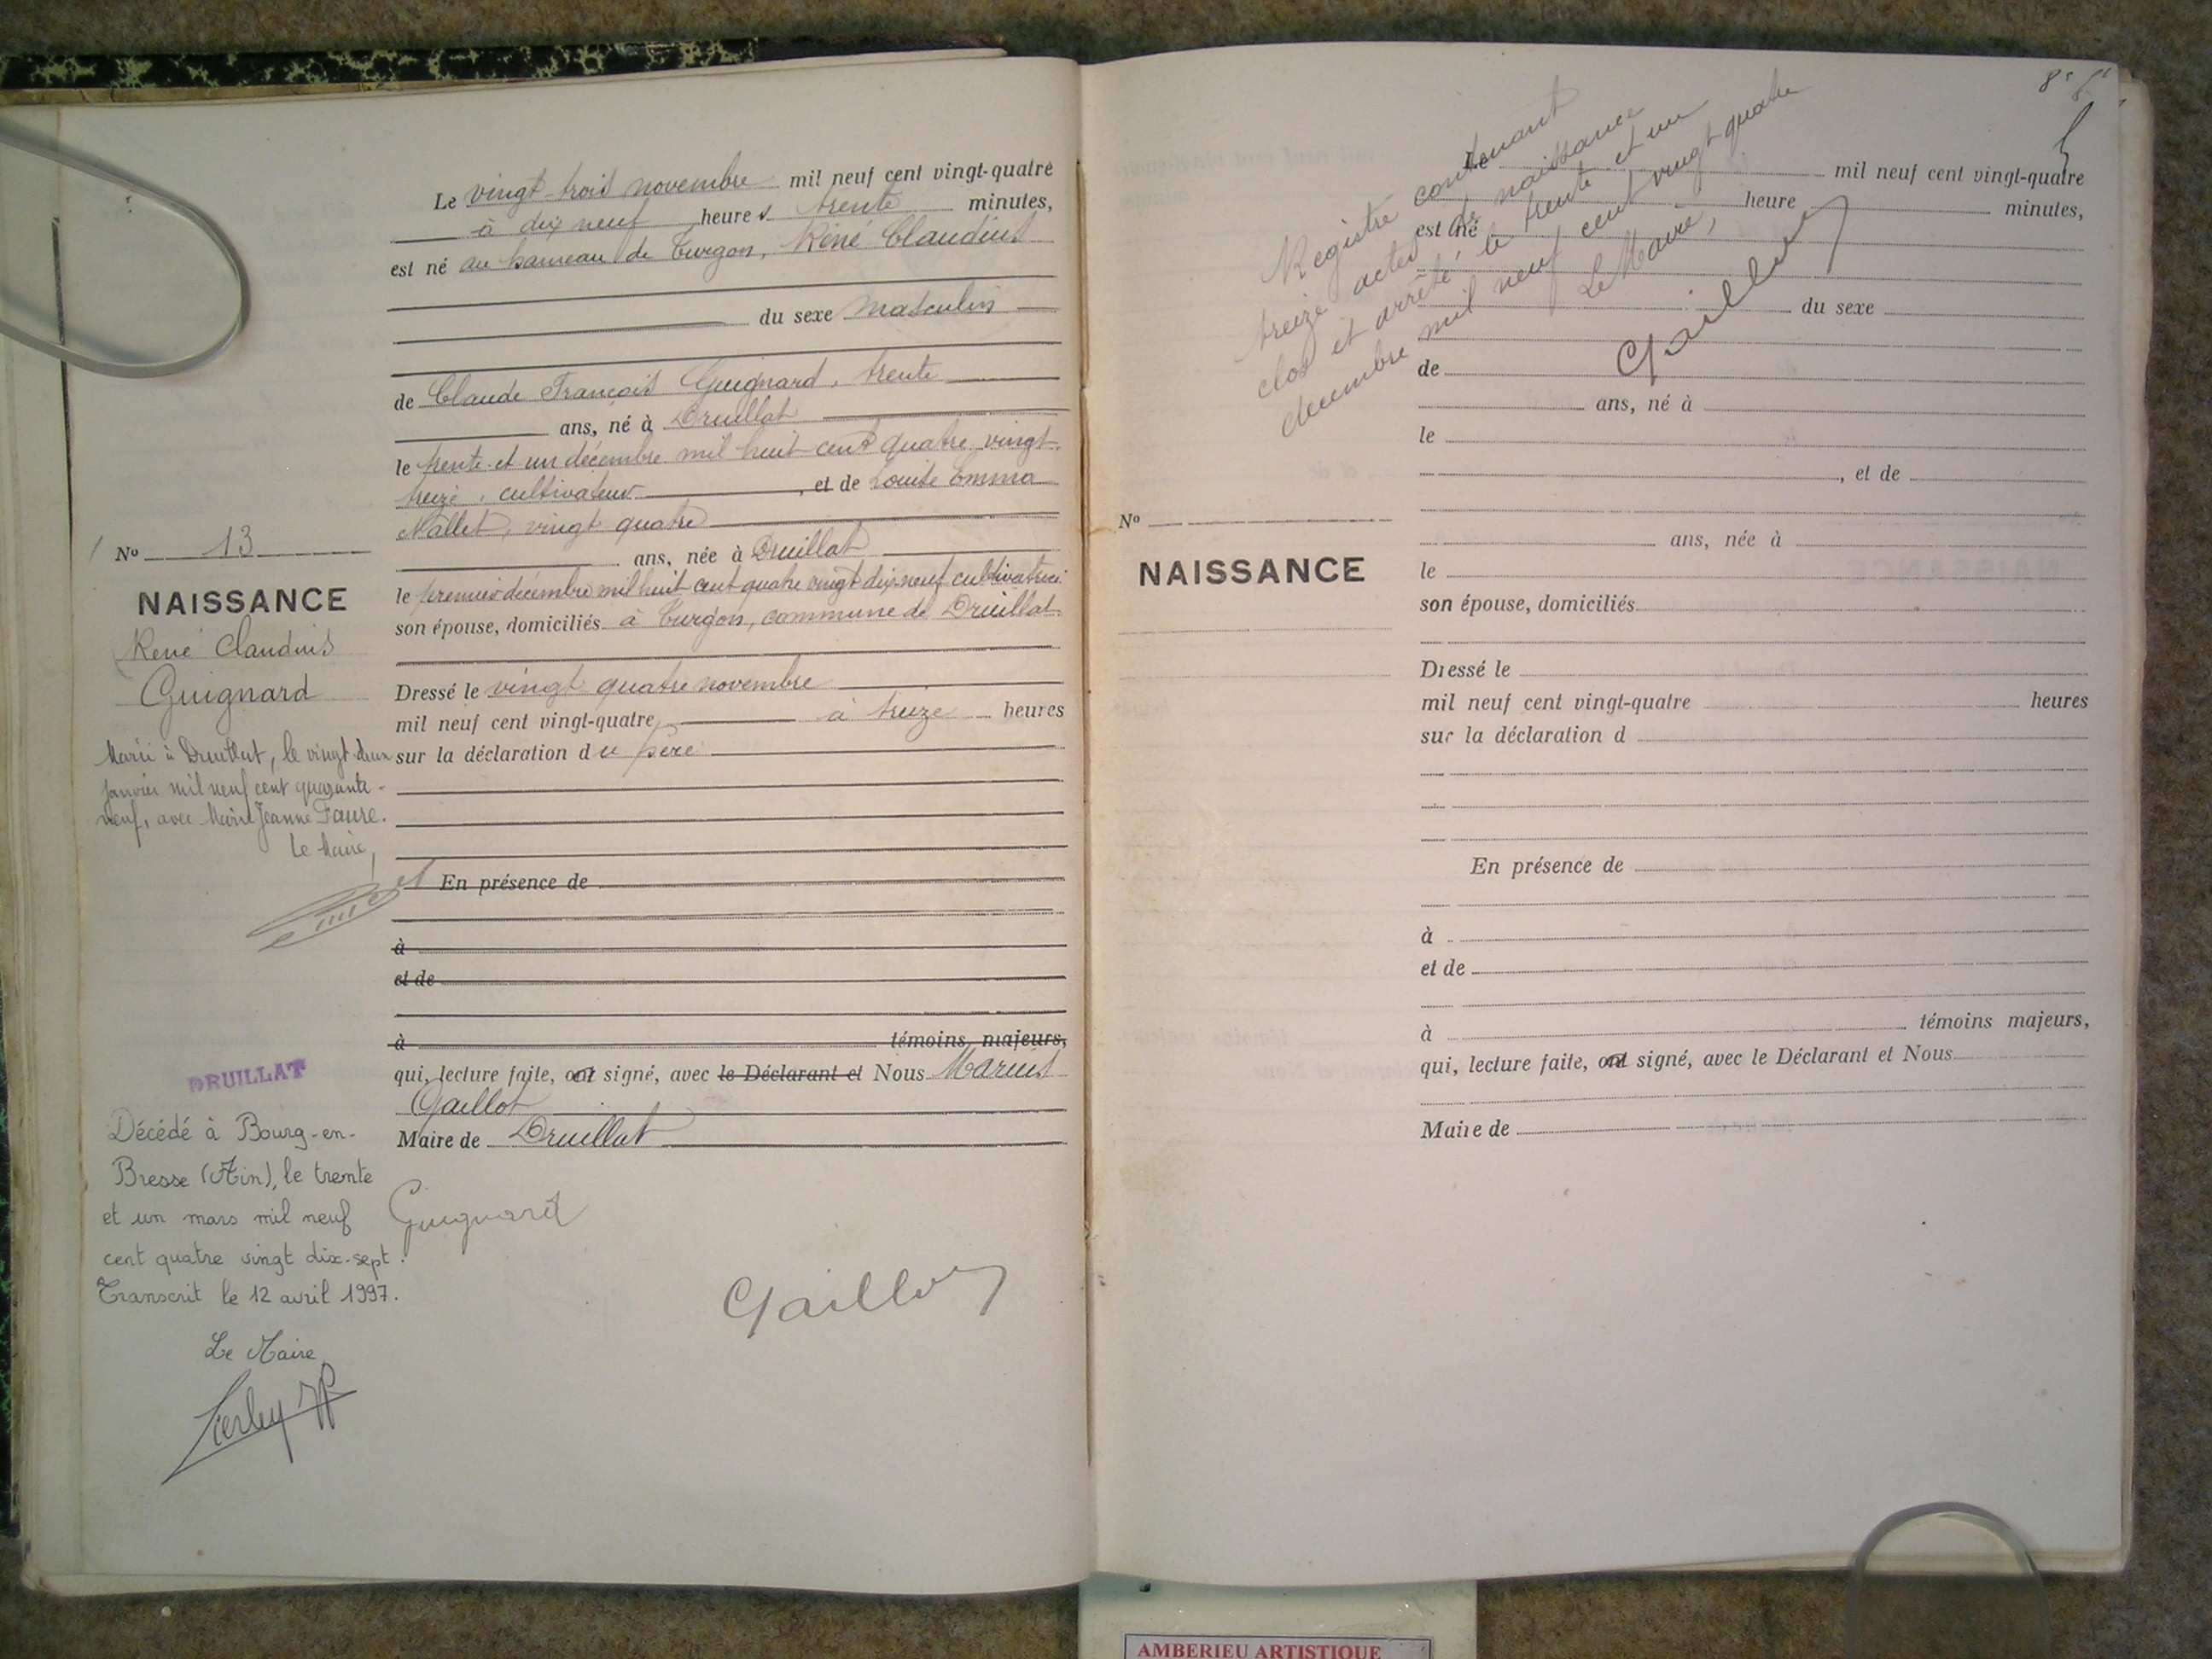 Le vingt trois novembre mil neuf cent vingt-quatre
à dix neuf heures trente minutes,
est né au hameau de Turgon, René Claudius
du sexe masculin
de Claude François Guignard, trente
ans, né à Druillat
le trente et un décembre mil huit cent quatre vingt
treize, cultivateur, et de Louise Emma
Mallet, vingt quatre
ans, née à Druillat
le premier décembre mil huit cent quatre vingt dix neuf cultivatrice
son épouse, domiciliés à Turgon, commune de Druillat
Dressé le vingt quatre novembre
mil neuf cent vingt-quatre à treize heures
sur la déclaration du père
En présence de
à
et de
à témoins majeurs,
qui, lecture faite, ont signé, avec le Déclarant et Nous Marius
Gaillot
Maire de Druillat
Guignard
Gaillot
No 13
NAISSANCE
René Claudius
Guignard
Marié à Druillat, le vingt deux
janvier mil neuf cent quarante-
neuf, avec Marie Jeanne Faure.
Le Maire,
DRUILLAT
Décédé à Bourg-en-
Bresse (Ain), le trente
et un mars mil neuf
cent quatre vingt dix-sept.
Transcrit le 12 avril 1997.
Le Maire
Registre contenant
treize actes de naissance
clos et arrêté le trente et un
décembre mil neuf cent vingt quatre
Le Maire,
Gaillot
Le mil neuf cent vingt-quatre
heure minutes,
est né
du sexe
de
ans, né à
le
, et de
ans, née à
le
son épouse, domiciliés
Dressé le
mil neuf cent vingt-quatre heures
sur la déclaration d
En présence de
à
et de
à témoins majeurs,
qui, lecture faite, ont signé, avec le Déclarant et Nous
Maire de
No
NAISSANCE
AMBERIEU ARTISTIQUE